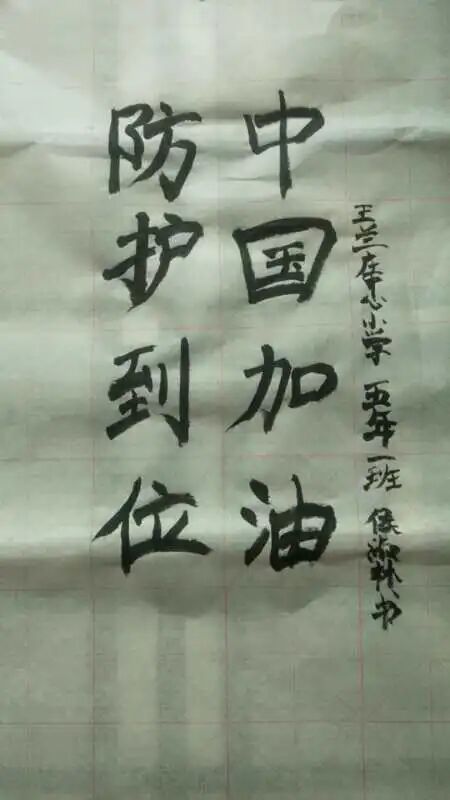 王兰庄中心小学 五年一班 侯淑林书
中国加油
防护到位